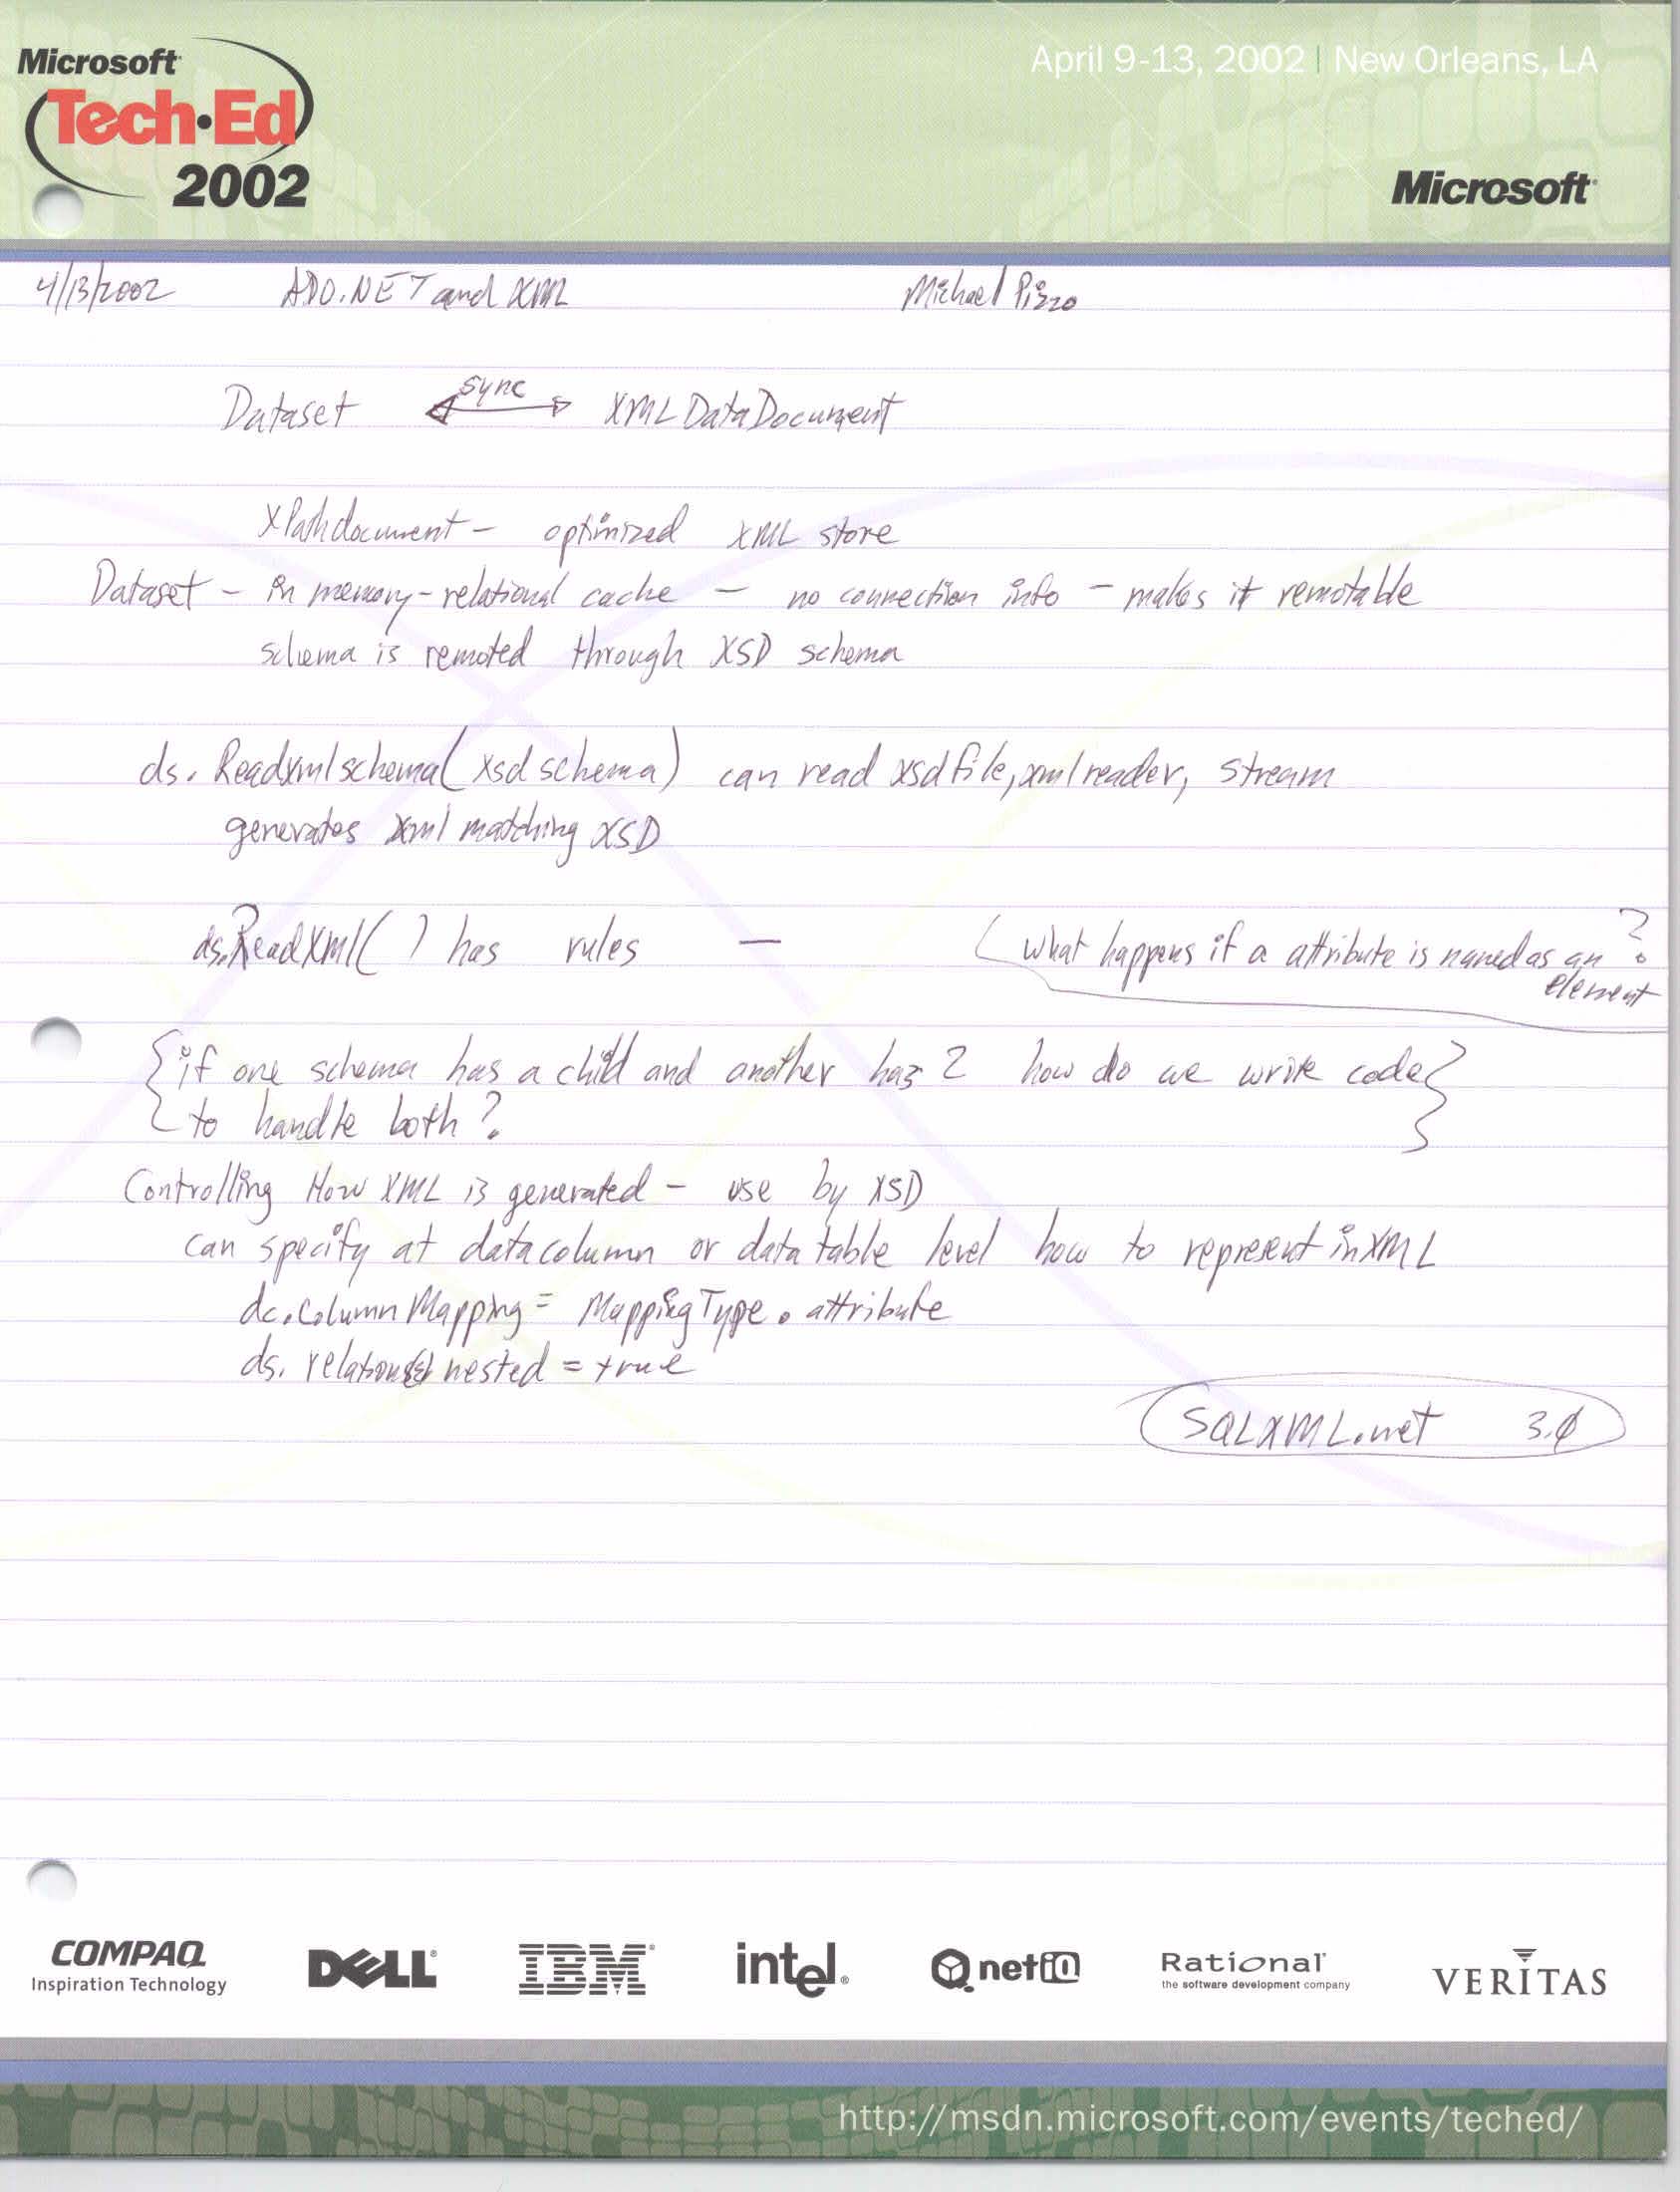 Microsoft
Tech·Ed
2002
April 9-13, 2002 | New Orleans, LA
Microsoft
4/13/2002 ADO.NET and XML Michael Pizzo
Dataset sync XMLDataDocument
XPathdocument - optimized XML store
Dataset - in memory-relational cache - no connection info - makes it remotable
schema is remoted through XSD schema
ds. Readxmlschema(xsd schema) can read xsd file, xmlreader, stream
generates xml matching XSD
ds.ReadXml( ) has rules - (what happens if a attribute is named as an ?
element
{if one schema has a child and another has 2 how do we write code}
to handle both?
Controlling How XML is generated - use by XSD
can specify at datacolumn or data table level how to represent in XML
dc.ColumnMapping = MappingType.attribute
ds. nested = true
SQLXML.net 3.0
COMPAQ
Inspiration Technology
DELL
IBM
intel
netiQ
Rational
the software development company
VERITAS
http://msdn.microsoft.com/events/teched/